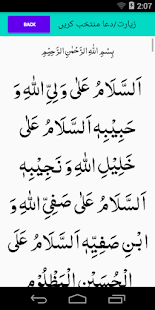 2:07
BACK زیارت/دعا منتخب کریں
بِسْمِ اللهِ الرَّحْمٰنِ الرَّحِيْمِ
اَلسَّلَامُ عَلٰى وَلِيِّ اللهِ وَ
حَبِيْبِهٖ اَلسَّلَامُ عَلٰى
خَلِيْلِ اللهِ وَ نَجِيْبِهٖ
اَلسَّلَامُ عَلٰى صَفِيِّ اللهِ وَ
ابْنِ صَفِيِّهٖ اَلسَّلَامُ عَلَى
الْحُسَيْنِ الْمَظْلُوْمِ